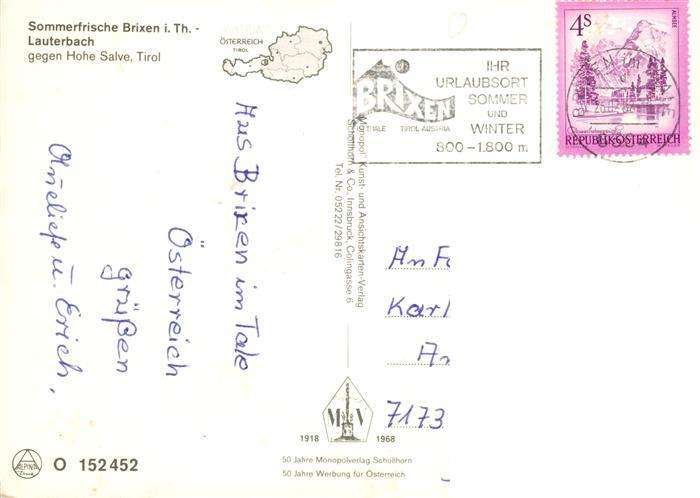 Sommerfrische Brixen i. Th. -
Lauterbach
gegen Hohe Salve, Tirol
ÖSTERREICH
TIROL
IHR
URLAUBSORT
SOMMER
UND
WINTER
800-1.800 m
BRIXEN
THALE TIROL AUSTRIA
4S
ALMSEE
REPUBLIK ÖSTERREICH
Aus Brixen im Tale
Österreich
grüßen
Anneliese u. Erich.
"Monopol" Kunst- und Ansichtskarten-Verlag
Schöllhorn & Co., Innsbruck, Colingasse 6
Tel. Nr. 05222/29816
An F
Karl
An
7173
M V
1918 1968
50 Jahre Monopolverlag Schöllhorn
50 Jahre Werbung für Österreich
ALPINA
O 152452